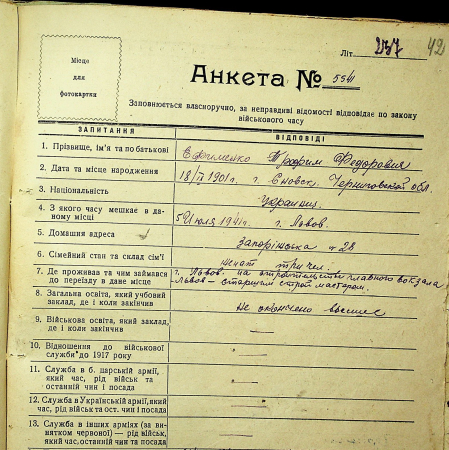 Літ. 237 42
Місце
для
фотокартки
Анкета № 554
Заповнюється власноручно, за неправдиві відомості відповідає по закону
військового часу
ЗАПИТАННЯ ВІДПОВІДІ
1. Прізвище, ім'я та по батькові Ефименко Трофим Федорович
2. Дата та місце народження 18/ 1901г. г. Сновск. Черниговской обл.
3. Національність Украинец
4. З якого часу мешкає в да-
ному місці 5 Июля 1941г. г. Львов.
5. Домашня адреса запорізька 28
6. Сімейний стан та склад сім'ї женат три чел.
7. Де проживав та чим займався
до переїзду в дане місце г. Львов. на строительстве главного вокзала
Львов – старшим строй мастером.
8. Загальна освіта, який учбовий
заклад, де і коли закінчив Не окончено высшее
9. Військова освіта, який заклад,
де і коли закінчив —
10. Відношення до військової
служби до 1917 року —
11. Служба в б. царській армії,
який час, рід військ та
останній чин і посада —
12. Служба в Українській армії, який
час, рід військ та ост. чин і посада —
13. Служба в інших арміях (за ви-
нятком червоної) — рід військ,
який час, останній чин та посада —